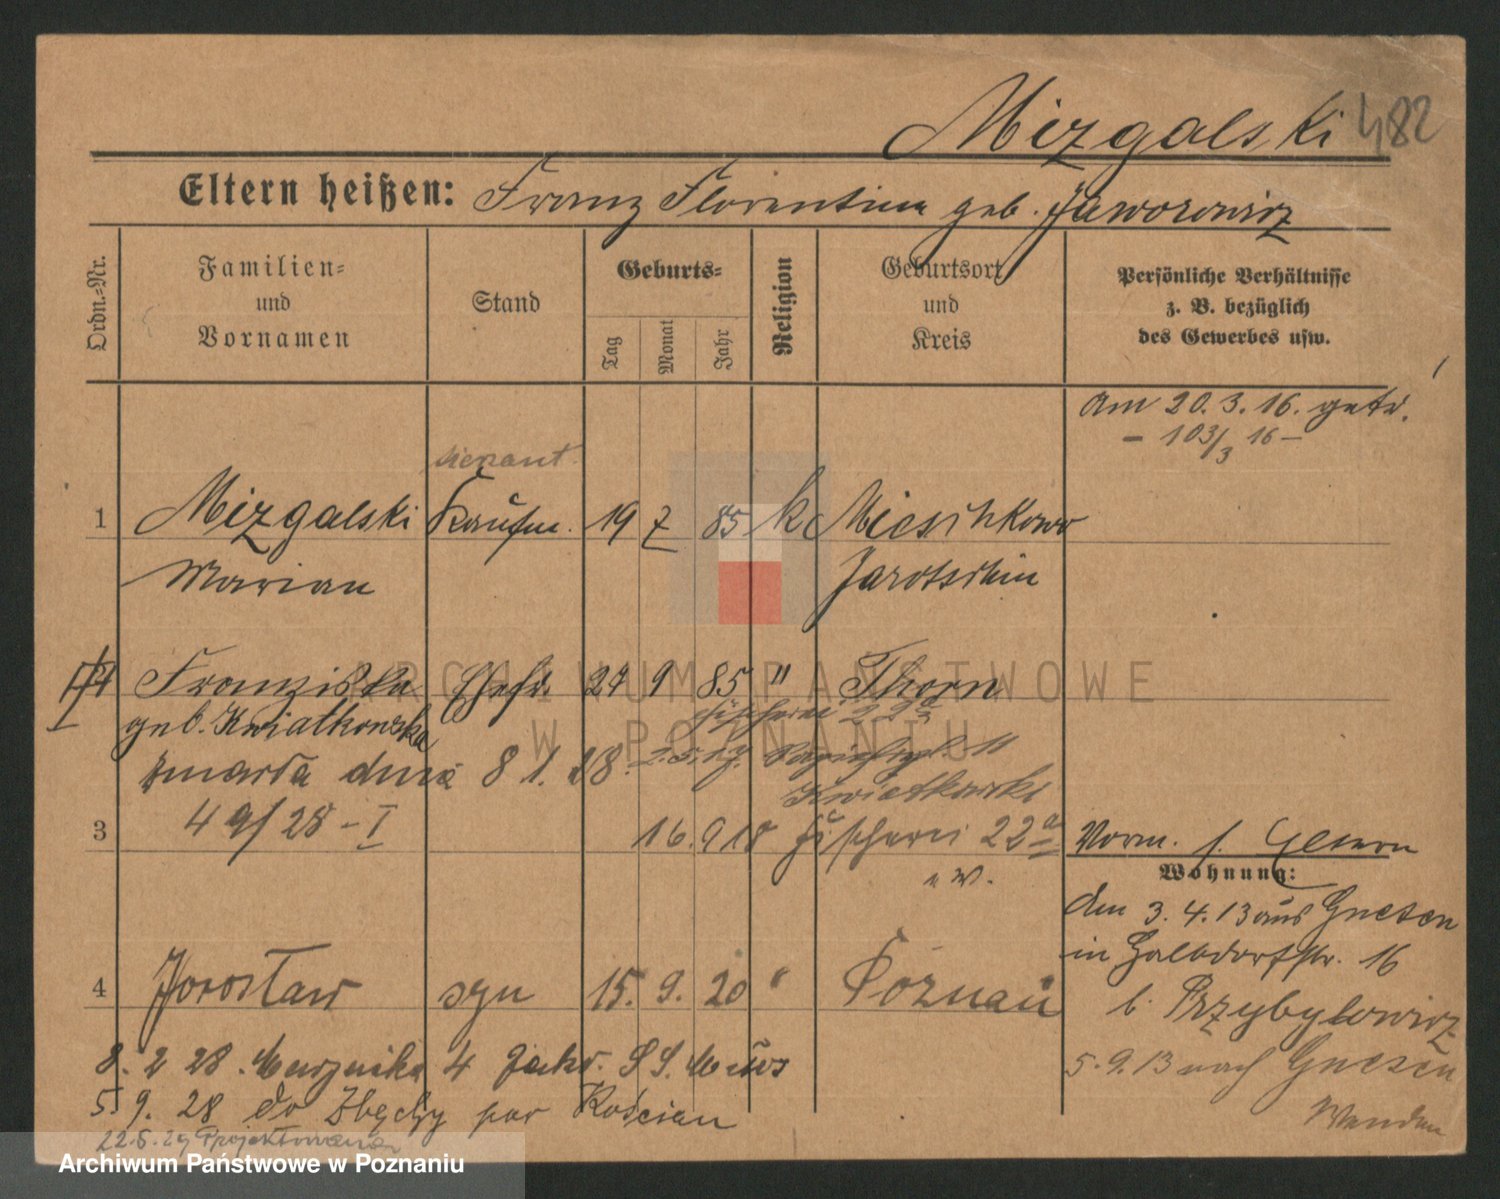 Mizgalski 482
Eltern heißen: Franz Florentine geb. Jaworowicz
Ordn.=Nr.
Familien=
und
Vornamen
Stand
Geburts=
Tag
Monat
Jahr
Religion
Geburtsort
und
Kreis
Persönliche Verhältnisse
z. B. bezüglich
des Gewerbes usw.
am 20.3.16. getr.
- 103/3 16 -
1 Mizgalski Kaufm. 19 7 85 k Mieschkow
Marian Jarotschin
Franziska Ehefr. 27 9 85 " Thorn
geb. Kwiatkowska
zmarła dnia 8 1. 28.
Kwiatkowski
49/28 - I
3 16.9 18 Fischerei 22a
Vorm. s. Eltern
Wohnung:
am 3.4.13 aus Gnesen
in Halbdorfstr. 16
b. Przybylowicz
5.9.13 nach Gnesen
4 Jarosław syn 15. 9. 20 " Poznań
8. 2 28.
5 9. 28 do Zbęchy pow Kościan
22.6.29
ARCHIWUM PAŃSTWOWE
W POZNANIU
Archiwum Państwowe w Poznaniu